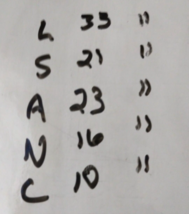 L 35 "
S 21 "
A 23 "
N 16 "
C 10 "